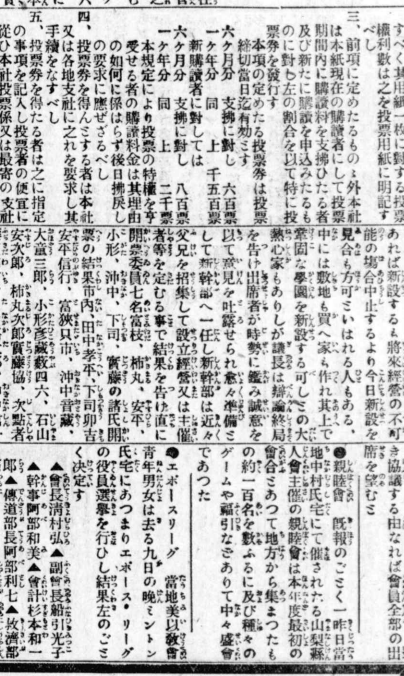 すべく其用紙一枚に對する投票
權利數は之を投票用紙に明記す
三、前項に定めたるもの、外本社
は本紙現在の購讀者にして投票
期間内に購讀料を支拂ひたる者
及び新たに購讀を申込みたるも
のに對し左の割合を以て特に投
票券を發行す
本項の定めたる投票券は投票
締切當日迄有効とす
六ヶ月分 支拂に對し 六百票
一ヶ年分 同 上 千五百票
新購讀者に對しては
六ヶ月分 支拂に對し 八百票
一ヶ年分 同 上 二千票
本規定により投票の特權を享
受せる者の購讀料金は其理由
の如何に係はらず後日拂戻し
の要求に應ぜざるべし
四、投票券を得んとする者は本社
又は各地支社に之れを要求し其
手續をなすべし
五、投票券を得たる者は之に指定
の事項を記入し投票者の便宜に
從ひ本社投票係又は最寄の支社
あれば新設するも將來經營の不可
能の塲合中止するより今日新設を
見合も方可さいはれる人もある、
中には敷地を買へ家も作れ其上で
堂固な學園を新設する可しとの大
熱心家もありしが議長は辯論終局
を告げ出席者が時勢に鑑み誠意を
以て意見を吐露せられ愈々準備と
して新幹部へ一任し新幹部は近々
父兄を招集して設立經營又は主催
者等を定むる事で結果を告け直に
開票委員七名富枝 柿丸 安平、
小形、沖中、下司、實藤の諸氏開
票の結果市內、田中孝平、下司卯吉
安平信行 富挾貝市 沖中音藏
大童三郎 小形彥藏數四六、石山
安次郎 柿丸次郎實藤協 次點者
き協議する由なれば會員全部の出
席を望むと
●親睦會 既報のごとく一昨日當
地中村氏宅にて催されたる山梨縣
人會主催の親睦會は本年度最初の
會合とあつて地方から集まつたも
の約一百名を數ふるに及び種々の
ゲームや福引などありて中々盛會
であつた
●エポースリーグ 當地美以敎會
青年男女は去る九日の晩ミントン
氏宅にあつまりエポース・リーグ
の役員選擧を行ひし結果左のごと
く決定す
▲會長淸村弘▲副會長船引光子
▲幹事阿部和美▲會計杉本和一
郎▲傳道部長阿部利七▲救濟部